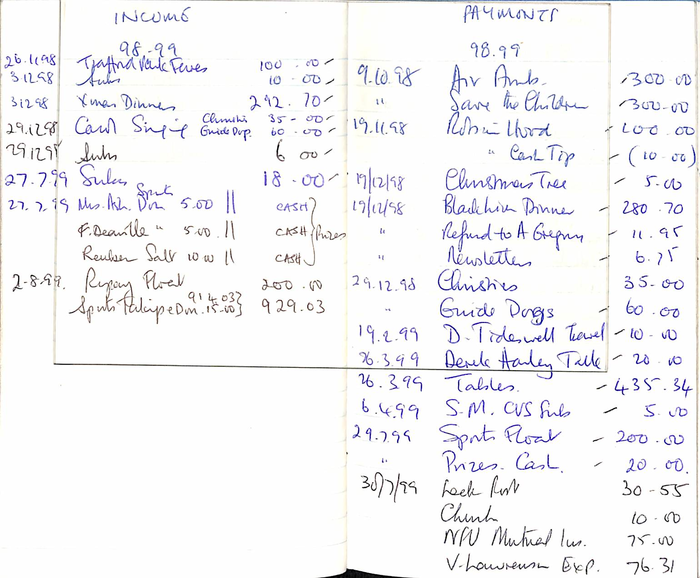 INCOME
98-99
26.11.98 Trafford Park Fewes 100.00
3.12.98 Subs 10.00
3.12.98 Xmas Dinner 242.70
29.12.98 Carol Singing Christies 35-00
Guide Dogs 60.00
29.12.98 Subs 6 00
27.7.99 Subs 18.00
27.7.99 Mrs. Ash. Don Sports 5.00 || CASH
F. Deaville " 5.00 || CASH } Prizes
Reuben Salt 10 00 || CASH
2-8.99. Repay Float 200.00
Sports Takings + Don. 914.03 15.00 } 929.03
PAYMONTS
98.99
9.10.98 Air Amb. 300.00
" Save the Children 300.00
19.11.98 Robin Hood 100.00
" Cash Tip (10.00)
19/12/98 Christmas Tree 5.00
19/12/98 Dinner 280.70
" Refund to A Gregory 11.95
" Newsletters 6.75
29.12.98 Christies 35.00
" Guide Dogs 60.00
19.2.99 D. Tideswell Travel 10.00
26.3.99 Derek Hanley Talk 20.00
26.3.99 Tables. 435.34
6.4.99 S.M. CVS Subs 5.00
29.7.99 Sports Float 200.00
" Prizes. Cash. 20.00.
30/7/99 Leek Post 30-55
Church 10.00
NFU Mutual Ins. 75.00
V. Lawrenson Exp. 76.31